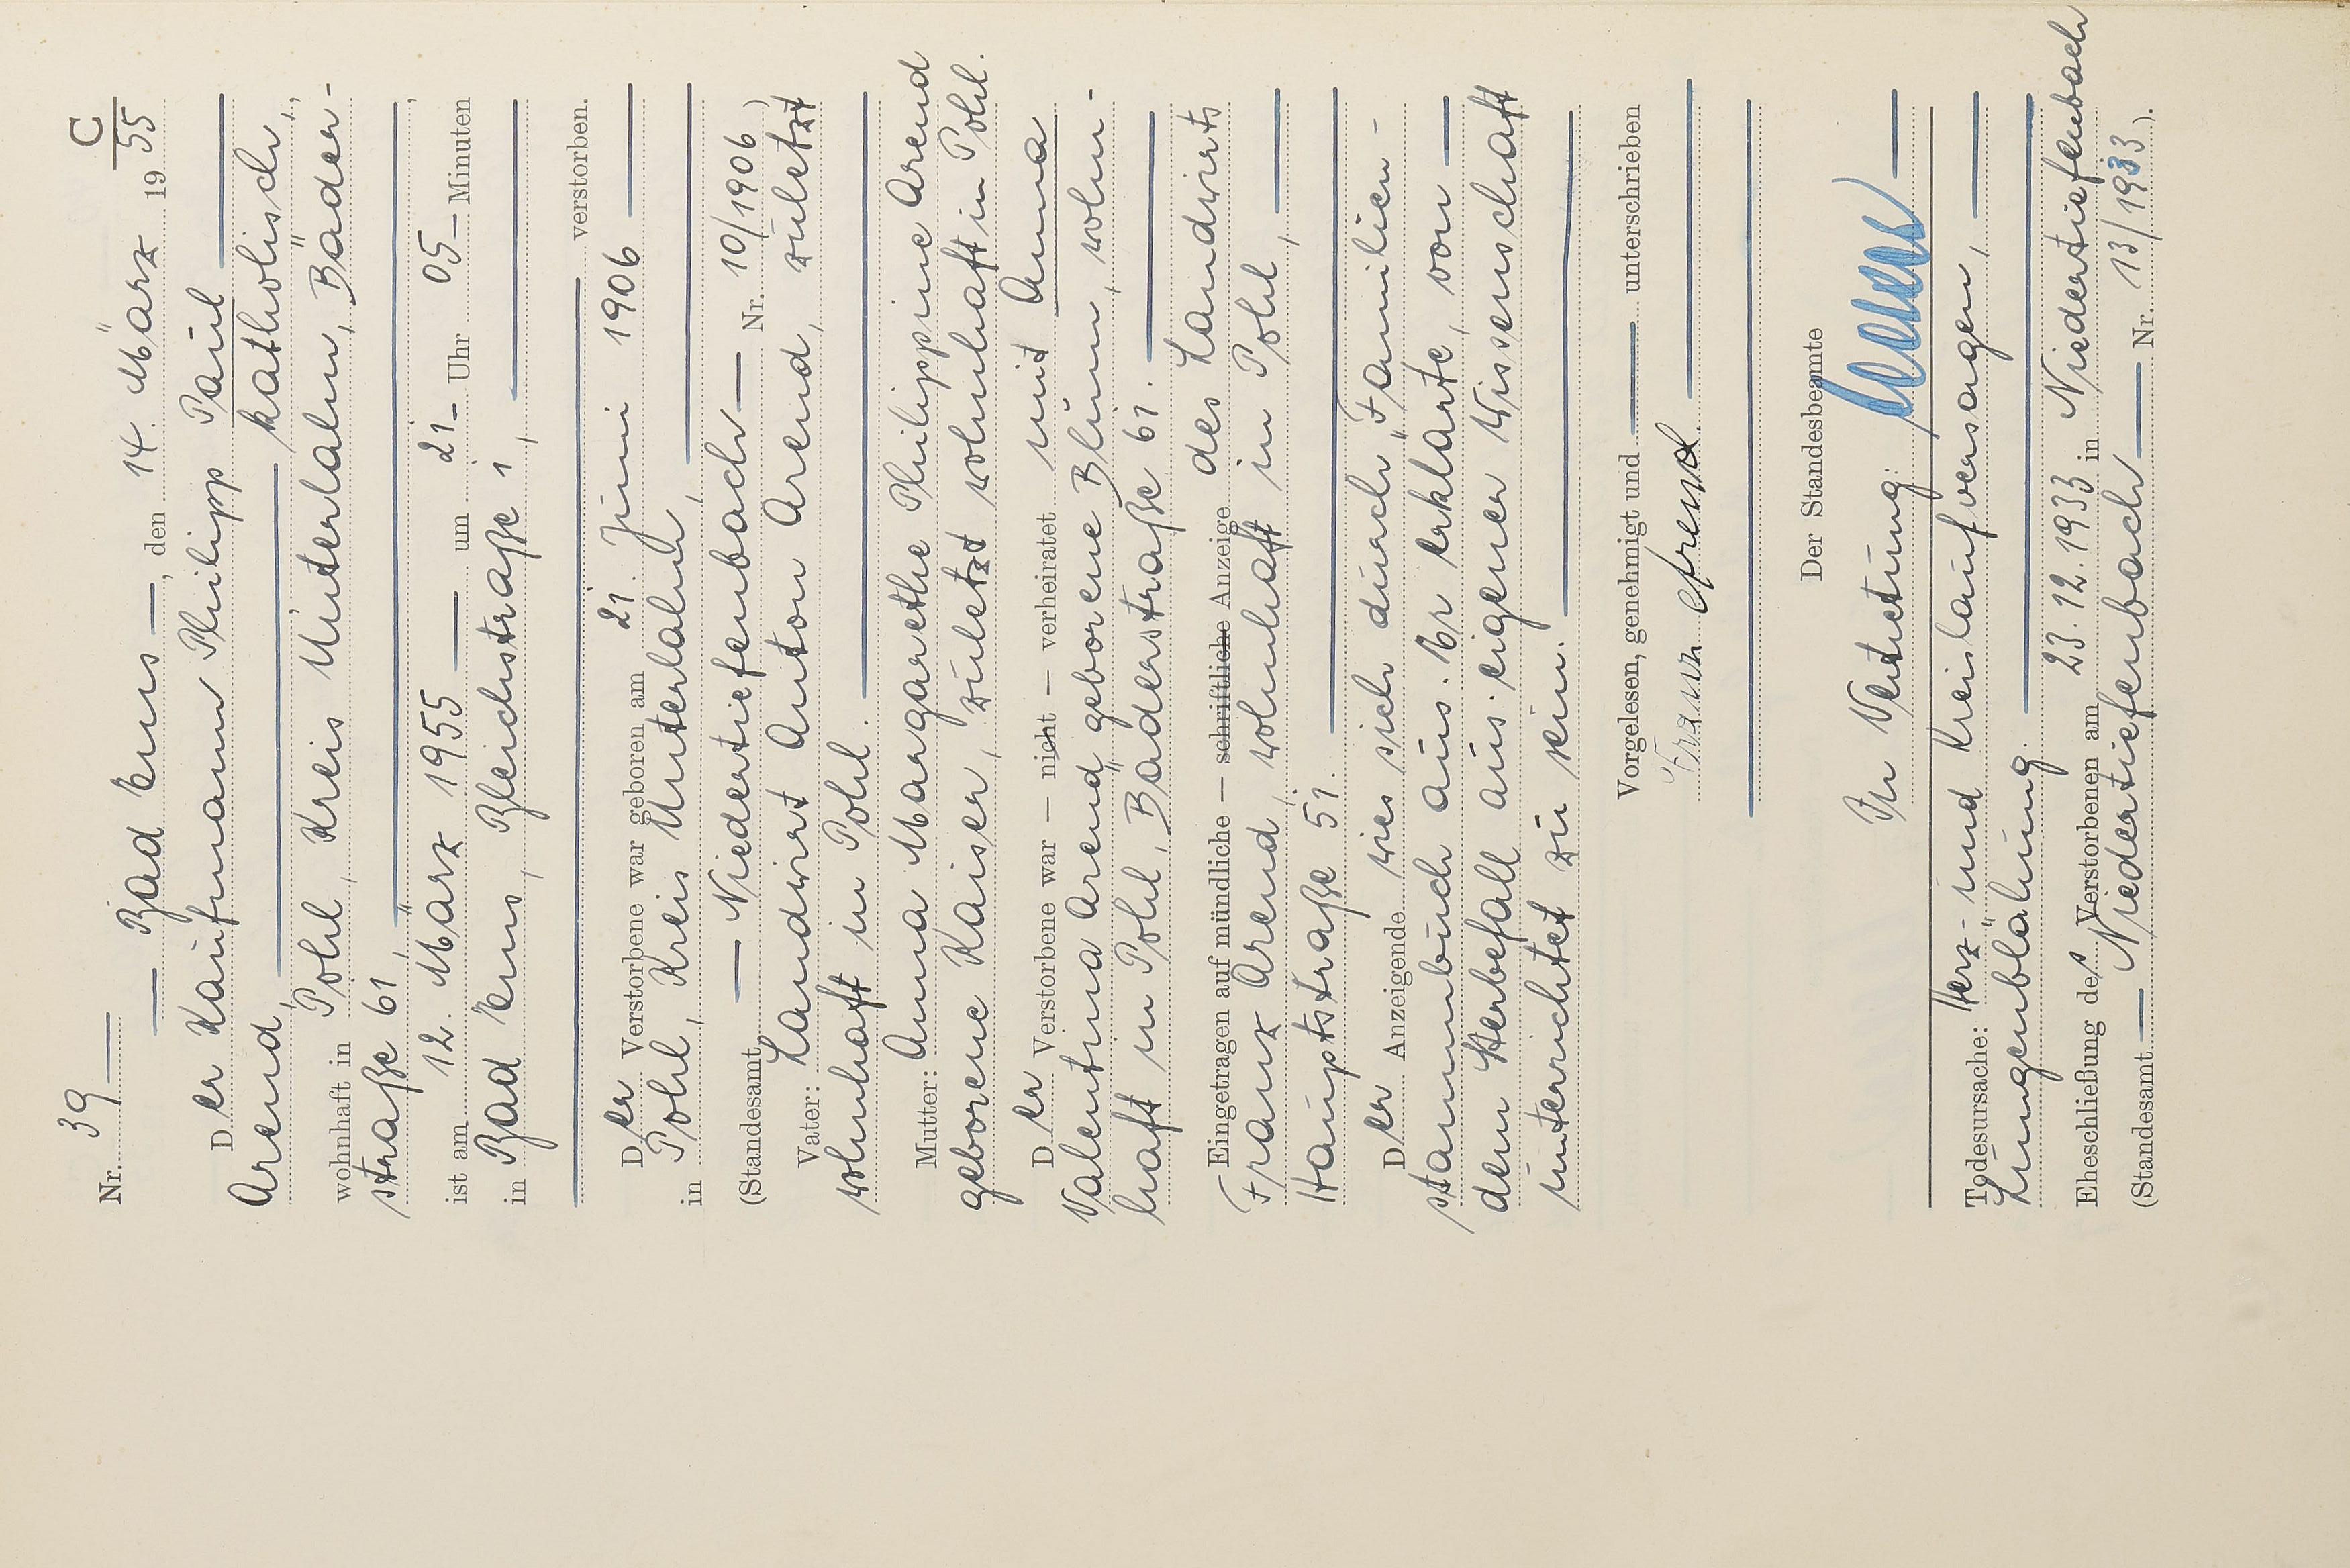 C
Nr. 39
Bad Ems, den 14. März 1955
Der Kaufmann Philipp Paul
Arend, katholisch,
wohnhaft in Pohl, Kreis Unterlahn, Bäder-
straße 61,
ist am 12. März 1955 um 21 Uhr 05 Minuten
in Bad Ems, Bleichstraße 1,
verstorben.
Der Verstorbene war geboren am 21. Juni 1906
in Pohl, Kreis Unterlahn,
(Standesamt Niedertiefenbach Nr. 10/1906)
Vater: Landwirt Anton Arend, zuletzt
wohnhaft in Pohl.
Mutter: Anna Margarethe Philippine Arend
geborene Kaiser, zuletzt wohnhaft in Pohl.
Der Verstorbene war — nicht — verheiratet mit Anna
Valentina Arend geborene Blüm, wohn-
haft in Pohl, Bäderstraße 61.
Eingetragen auf mündliche — schriftliche Anzeige des Landwirts
Franz Arend, wohnhaft in Pohl,
Hauptstraße 51.
Der Anzeigende wies sich durch Familien-
stammbuch aus. Er erklärte, von
dem Sterbefall aus eigener Wissenschaft
unterrichtet zu sein.
Vorgelesen, genehmigt und unterschrieben
Franz Arend
Der Standesbeamte
In Vertretung:
Todesursache: Herz- und Kreislaufversagen,
Lungenblähung.
Eheschließung des Verstorbenen am 23.12.1933 in Niedertiefenbach
(Standesamt Niedertiefenbach Nr. 13/1933).